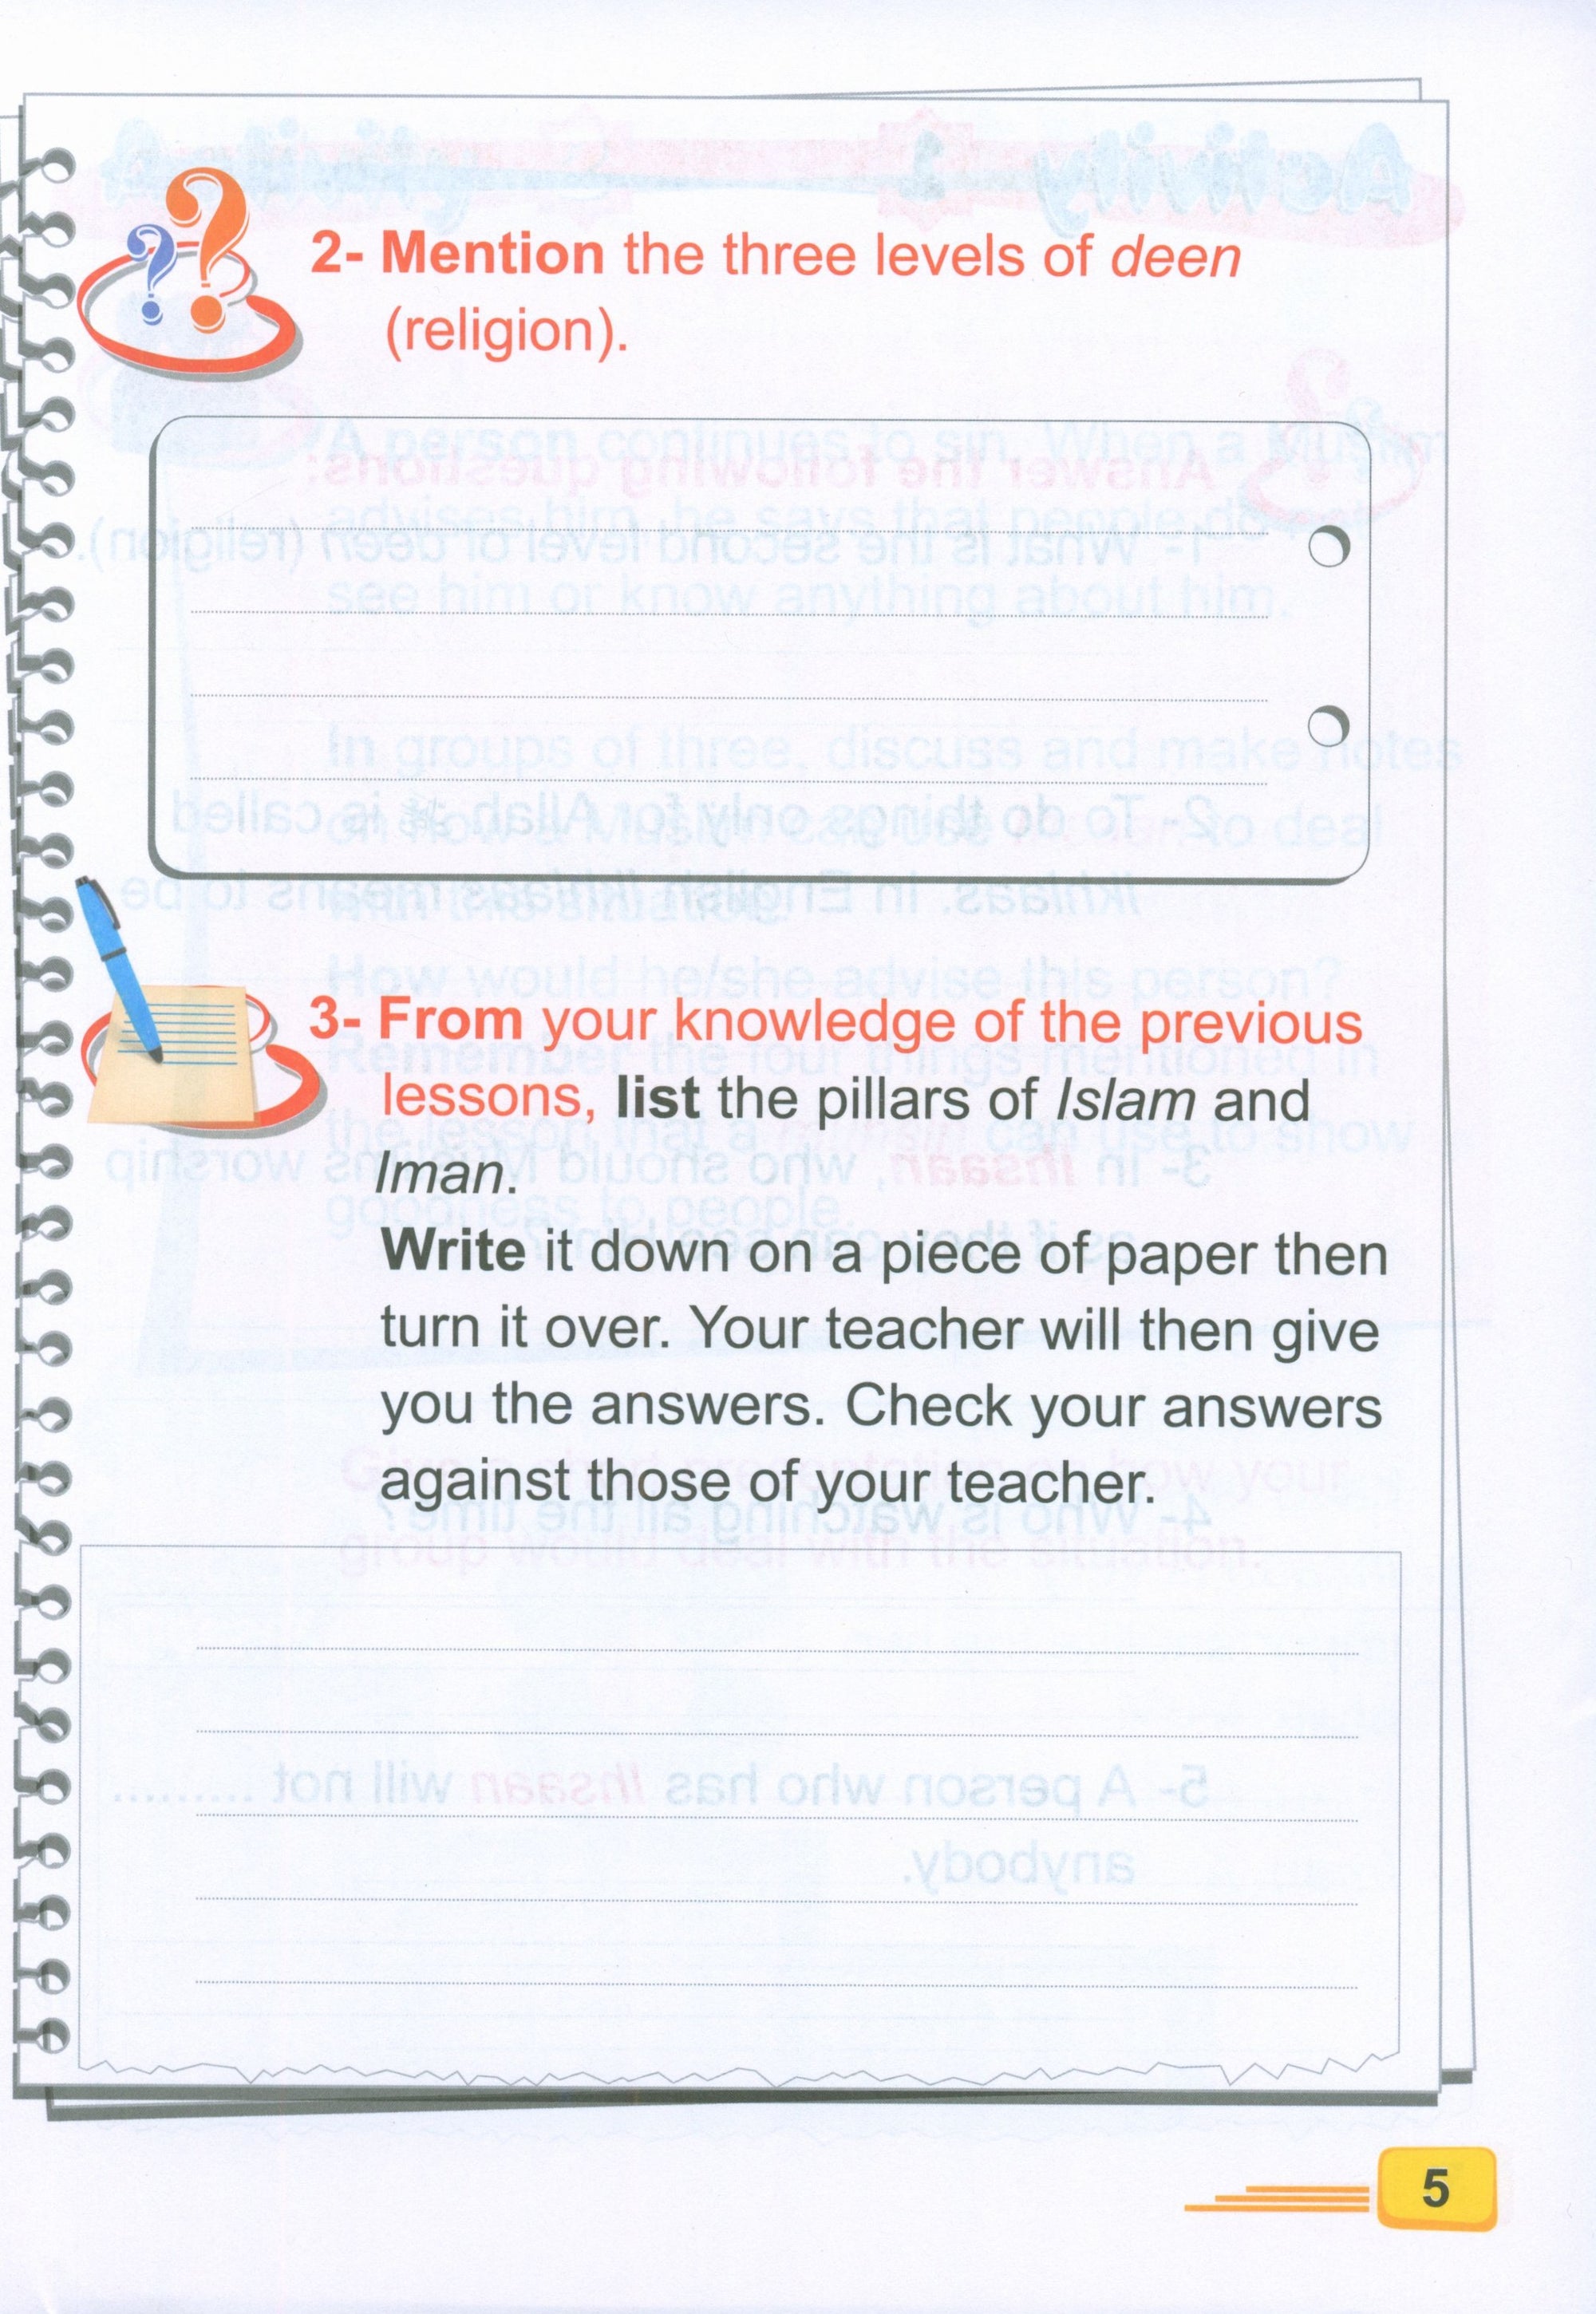 2- Mention the three levels of deen
(religion).
3- From your knowledge of the previous
lessons, list the pillars of Islam and
Iman.
Write it down on a piece of paper then
turn it over. Your teacher will then give
you the answers. Check your answers
against those of your teacher.
5